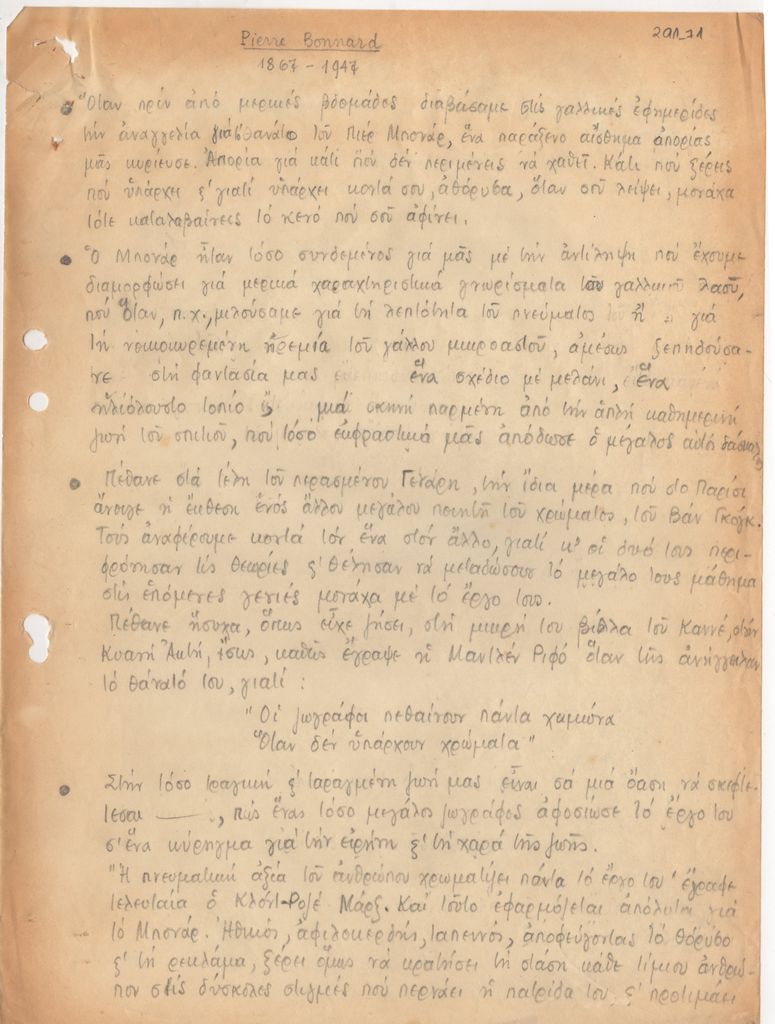 Pierre Bonnard
291_71
1867 - 1947
Ὅταν πρίν ἀπό μερικές βδομάδες διαβάσαμε στίς γαλλικές ἐφημερίδες
τήν ἀναγγελία γιά θάνατο τοῦ Πιέρ Μπονάρ, ἕνα παράξενο αἴσθημα ἀπορίας
μᾶς κυρίευσε. Ἀπορία γιά κάτι πού δέν περιμένεις νά χαθεῖ. Κάτι πού ξέρεις
πού ὑπάρχει ϗ' γιατί ὑπάρχει κοντά σου, ἀθόρυβα, ὅταν σοῦ λείψει, μονάχα
τότε καταλαβαίνεις τό κενό πού σοῦ ἀφίνει.
Ὁ Μπονάρ ἦταν τόσο συνδεμένος γιά μᾶς μέ τήν ἀντίληψη πού ἔχουμε
διαμορφώσει γιά μερικά χαραχτηριστικά γνωρίσματα τοῦ γαλλικοῦ λαοῦ,
πού ὅταν, π.χ., μιλούσαμε γιά τή λεπτότητα τοῦ πνεύματος ἤ γιά
τή νοικοκυρεμένη ἠρεμία τοῦ γάλλου μικροαστοῦ, ἀμέσως ξεπηδούσα-
νε στή φαντασία μας ἕνα σχέδιο μέ μελάνι, ἕνα
ἡλιόλουστο τοπίο μιά σκηνή παρμένη ἀπό τήν ἁπλή καθημερινή
ζωή τοῦ σπιτιοῦ, πού τόσο ἐκφραστικά μᾶς ἀπόδωσε ὁ μεγάλος αὐτός δάσκαλος
Πέθανε στά τέλη τοῦ περασμένου Γενάρη, τήν ἴδια μέρα πού στό Παρίσι
ἄνοιγε ἡ ἔκθεση ἑνός ἄλλου μεγάλου ποιητῆ τοῦ χρώματος, τοῦ Βάν Γκόγκ.
Τούς ἀναφέρουμε κοντά τόν ἕνα στόν ἄλλο, γιατί κ' οἱ δυό τους περι-
φρόνησαν τίς θεωρίες ϗ' θέλησαν νά μεταδώσουν τό μεγάλο τους μάθημα
στίς ἑπόμενες γενιές μονάχα μέ τό ἔργο τους.
Πέθανε ἥσυχα, ὅπως εἶχε ζήσει, στή μικρή του βίλλα τοῦ Καννέ, στήν
Κυανή Ἀκτή, ἴσως, καθώς ἔγραψε ἡ Μαντλέν Ριφό ὅταν τῆς ἀνήγγειλαν
τό θάνατό του, γιατί :
"Οἱ ζωγράφοι πεθαίνουν πάντα χειμώνα
Ὅταν δέν ὑπάρχουν χρώματα"
Στήν τόσο τραγική ϗ' ταραγμένη ζωή μας εἶναι σά μιά ὄαση νά σκέφτε-
τεσαι, πώς ἕνας τόσο μεγάλος ζωγράφος ἀφοσίωσε τό ἔργο του
σ' ἕνα κύρηγμα γιά τήν εἰρήνη ϗ' τή χαρά τῆς ζωῆς.
"Ἡ πνευματική ἀξία τοῦ ἀνθρώπου χρωματίζει πάντα τό ἔργο του" ἔγραψε
τελευταία ὁ Κλόντ-Ροζέ Μάρξ. Καί τοῦτο ἐφαρμόζεται ἀπόλυτα γιά
τό Μπονάρ. Ἠθικός, ἀφιλοκερδής, ταπεινός, ἀποφεύγοντας τό θόρυβο
ϗ' τή ρεκλάμα, ξέρει ὅμως νά κρατήσει τή στάση κάθε τίμιου ἀνθρώ-
που στίς δύσκολες στιγμές πού περνάει ἡ πατρίδα του, ϗ' προτιμάει